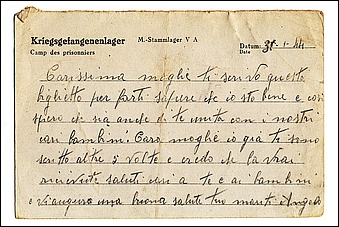 Kriegsgefangenenlager M.-Stammlager V A
Camp des prisonniers
Datum: 31-1-44
Date
Carissima moglie ti scrivo questo
biglietto per farti sapere che io sto bene e così
spero che sia anche di te unita con i nostri
cari bambini. Cara moglie io già ti sono
scritto altre 5 volte e credo che la vrai
ricevuto saluti cari a te e ai bambini
e vi auguro una buona salute tuo marito Angelo